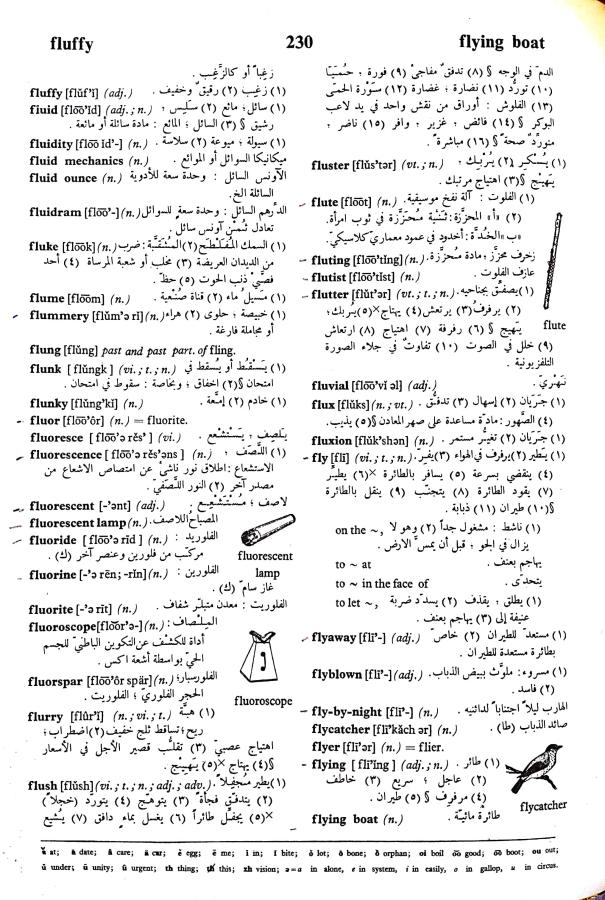 fluffy 230 flying boat
زغباً أو كالزَّغِب .
fluffy [flŭf'ĭ] (adj.) (١) زغِب (٢) رقيق وخفيف .
fluid [flōō'ĭd] (adj.; n.) (١) سائل؛ مائع (٢) سَلِيس ،
رشيق §(٣) السائل ؛ المائع : مادة سائلة أو مائعة .
fluidity [flōō ĭd'-] (n.) (١) سيولة ؛ ميوعة (٢) سلاسة .
fluid mechanics (n.) ميكانيكا السوائل أو الموائع .
fluid ounce (n.) الأونس السائل : وحدة سعة للأدوية
السائلة الخ.
fluidram [flōō'-] (n.) الدرهم السائل : وحدة سعة للسوائل
تعادل ثُمْن أونس سائل .
fluke [flōōk] (n.) (١) السمك المفلطح (٢) المُثْقَبة : ضرب
من الديدان العريضة (٣) مخلب أو شعبة المرساة (٤) أحد
فصَّيْ ذنب الحوت (٥) حظّ .
flume [flōōm] (n.) (١) مَسيل ماء (٢) قناة صُنْعية .
flummery [flŭm'ə rĭ] (n.) (١) خبيصة ؛ حلوى (٢) هراء
أو مجاملة فارغة .
flung [flŭng] past and past part. of fling.
flunk [flŭngk] (vi.; t.; n.) (١) يَسْقُط أو يُسقط في
امتحان §(٢) إخفاق ؛ وبخاصة : سقوط في امتحان .
flunky [flŭng'kĭ] (n.) (١) خادم (٢) إمّعة .
fluor [flōō'ôr] (n.) = fluorite.
fluoresce [flōō'ə rĕs'] (vi.) يلصِف ، يَسْتَشِعّ .
fluorescence [flōō'ə rĕs'əns] (n.) (١) اللَّصَف ،
الاستشعاع : اطلاق نور ناشئ عن امتصاص الاشعاع من
مصدر آخر (٢) النور اللَّصَفي .
fluorescent [-'ənt] (adj.) لاصف ؛ مُسْتَشِعّ .
fluorescent lamp (n.) المصباح اللاصف .
fluoride [flōō'ə rīd] (n.) الفلوريد :
مركّب من فلورين وعنصر آخر (ك) .
fluorine [-'ə rēn; -rĭn] (n.) الفلورين :
غاز سام (ك) .
fluorescent
lamp
fluorite [-'ə rīt] (n.) الفلوريت : معدن متبلّر شفاف .
fluoroscope [flōōr'ə-] (n.) المِلْصاف :
أداة للكشف عن التكوين الباطنيّ للجسم
الحيّ بواسطة أشعة اكس .
fluorspar [flōō'ôr spär] (n.) الفلورسبار ؛
الحجر الفلوريّ ؛ الفلوريت .
fluoroscope
flurry [flûr'ĭ] (n.; vi.; t.) (١) هبّة
ريح ؛ تساقط ثلج خفيف (٢) اضطراب ؛
اهتياج عصبيّ (٣) تقلّب قصير الأجل في الأسعار
§(٤) يهتاج ×(٥) يَهيج .
flush [flŭsh] (vi.; t.; n.; adj.; adv.) (١) يطير مُجْفِلاً
(٢) يتدفّق فجأةً (٣) يتوهّج (٤) يتورّد (خجلاً)
×(٥) يجفّل طائراً (٦) يغسل بماء دافق (٧) يُشيع
الدمَ في الوجه §(٨) تدفّق مفاجئ (٩) فورة ، حُميّا
(١٠) تورّد (١١) نضارة ؛ غضارة (١٢) سَوْرة الحمّى
(١٣) الفلوش : أوراق من نقش واحد في يد لاعب
البوكر §(١٤) فائض ، غزير ، وافر (١٥) ناضر ،
متورّد صحةً §(١٦) مباشرةً .
fluster [flŭs'tər] (vt.; n.) (١) يُسكِر (٢) يُربك ،
يهيّج §(٣) اهتياج مرتبك .
flute [flōōt] (n.) (١) الفلوت : آلة نفخ موسيقية .
(٢) «أ» المحزّزة : ثنية محزّزة في ثوب امرأة .
«ب» الخُدّة : أخدود في عمود معماريّ كلاسيكيّ .
fluting [flōō'tĭng] (n.) زخرف محزّز ؛ مادة محزّزة .
flutist [flōō'tĭst] (n.) عازف الفلوت .
flutter [flŭt'ər] (vi.; t.; n.) (١) يصفّق بجناحيه .
(٢) يرفرف (٣) يرتعش (٤) يهتاج ×(٥) يُربك ؛
يهيّج §(٦) رفرفة (٧) اهتياج (٨) ارتعاش
(٩) خلل في الصوت (١٠) تفاوت في جلاء الصورة
التلفزيونية .
flute
fluvial [flōō'vĭ əl] (adj.) نَهْريّ .
flux [flŭks] (n.; vt.) (١) جَرَيان (٢) إسهال (٣) تدفّق .
(٤) الصَّهور : مادة مساعدة على صهر المعادن §(٥) يذيب .
fluxion [flŭk'shən] (n.) (١) جَرَيان (٢) تغيّر مستمر .
fly [flī] (vi.; t.; n.) (١) يطير (٢) يرفرف في الهواء (٣) يفرّ .
(٤) ينقضي بسرعة (٥) يسافر بالطائرة ×(٦) يطيّر
(٧) يقود الطائرة (٨) يتجنّب (٩) ينقل بالطائرة
§(١٠) طيران (١١) ذبابة .
on the ~, (١) ناشط : مشغول جداً (٢) وهو لا
يزال في الجو ؛ قبل أن يمسّ الارض .
to ~ at يهاجم بعنف .
to ~ in the face of يتحدّى .
to let ~, (١) يطلق ، يقذف (٢) يسدّد ضربة
عنيفة إلى (٣) يهاجم بعنف .
flyaway [flī'-] (adj.) (١) مستعدّ للطيران (٢) خاصّ
بطائرة مستعدة للطيران .
flyblown [flī'-] (adj.) (١) مسروء : ملوّث ببيض الذباب .
(٢) فاسد .
fly-by-night [flī'-] (n.) الهارب ليلاً اجتناباً لدائنيه .
flycatcher [flī'kăch ər] (n.) صائد الذباب (طا) .
flyer [flī'ər] (n.) = flier.
flying [flī'ĭng] (adj.; n.) (١) طائر .
(٢) عاجل ؛ سريع (٣) خاطف
(٤) مرفرف §(٥) طيران .
flycatcher
flying boat (n.) طائرة مائيّة .
ă at; ā date; â care; ä car; ĕ egg; ē me; ĭ in; ī bite; ŏ lot; ō bone; ô orphan; oi boil ŏŏ good; ōō boot; ou out;
ŭ under; ū unity; û urgent; th thing; th this; zh vision; ə=a in alone, e in system, i in easily, o in gallop, u in circus.